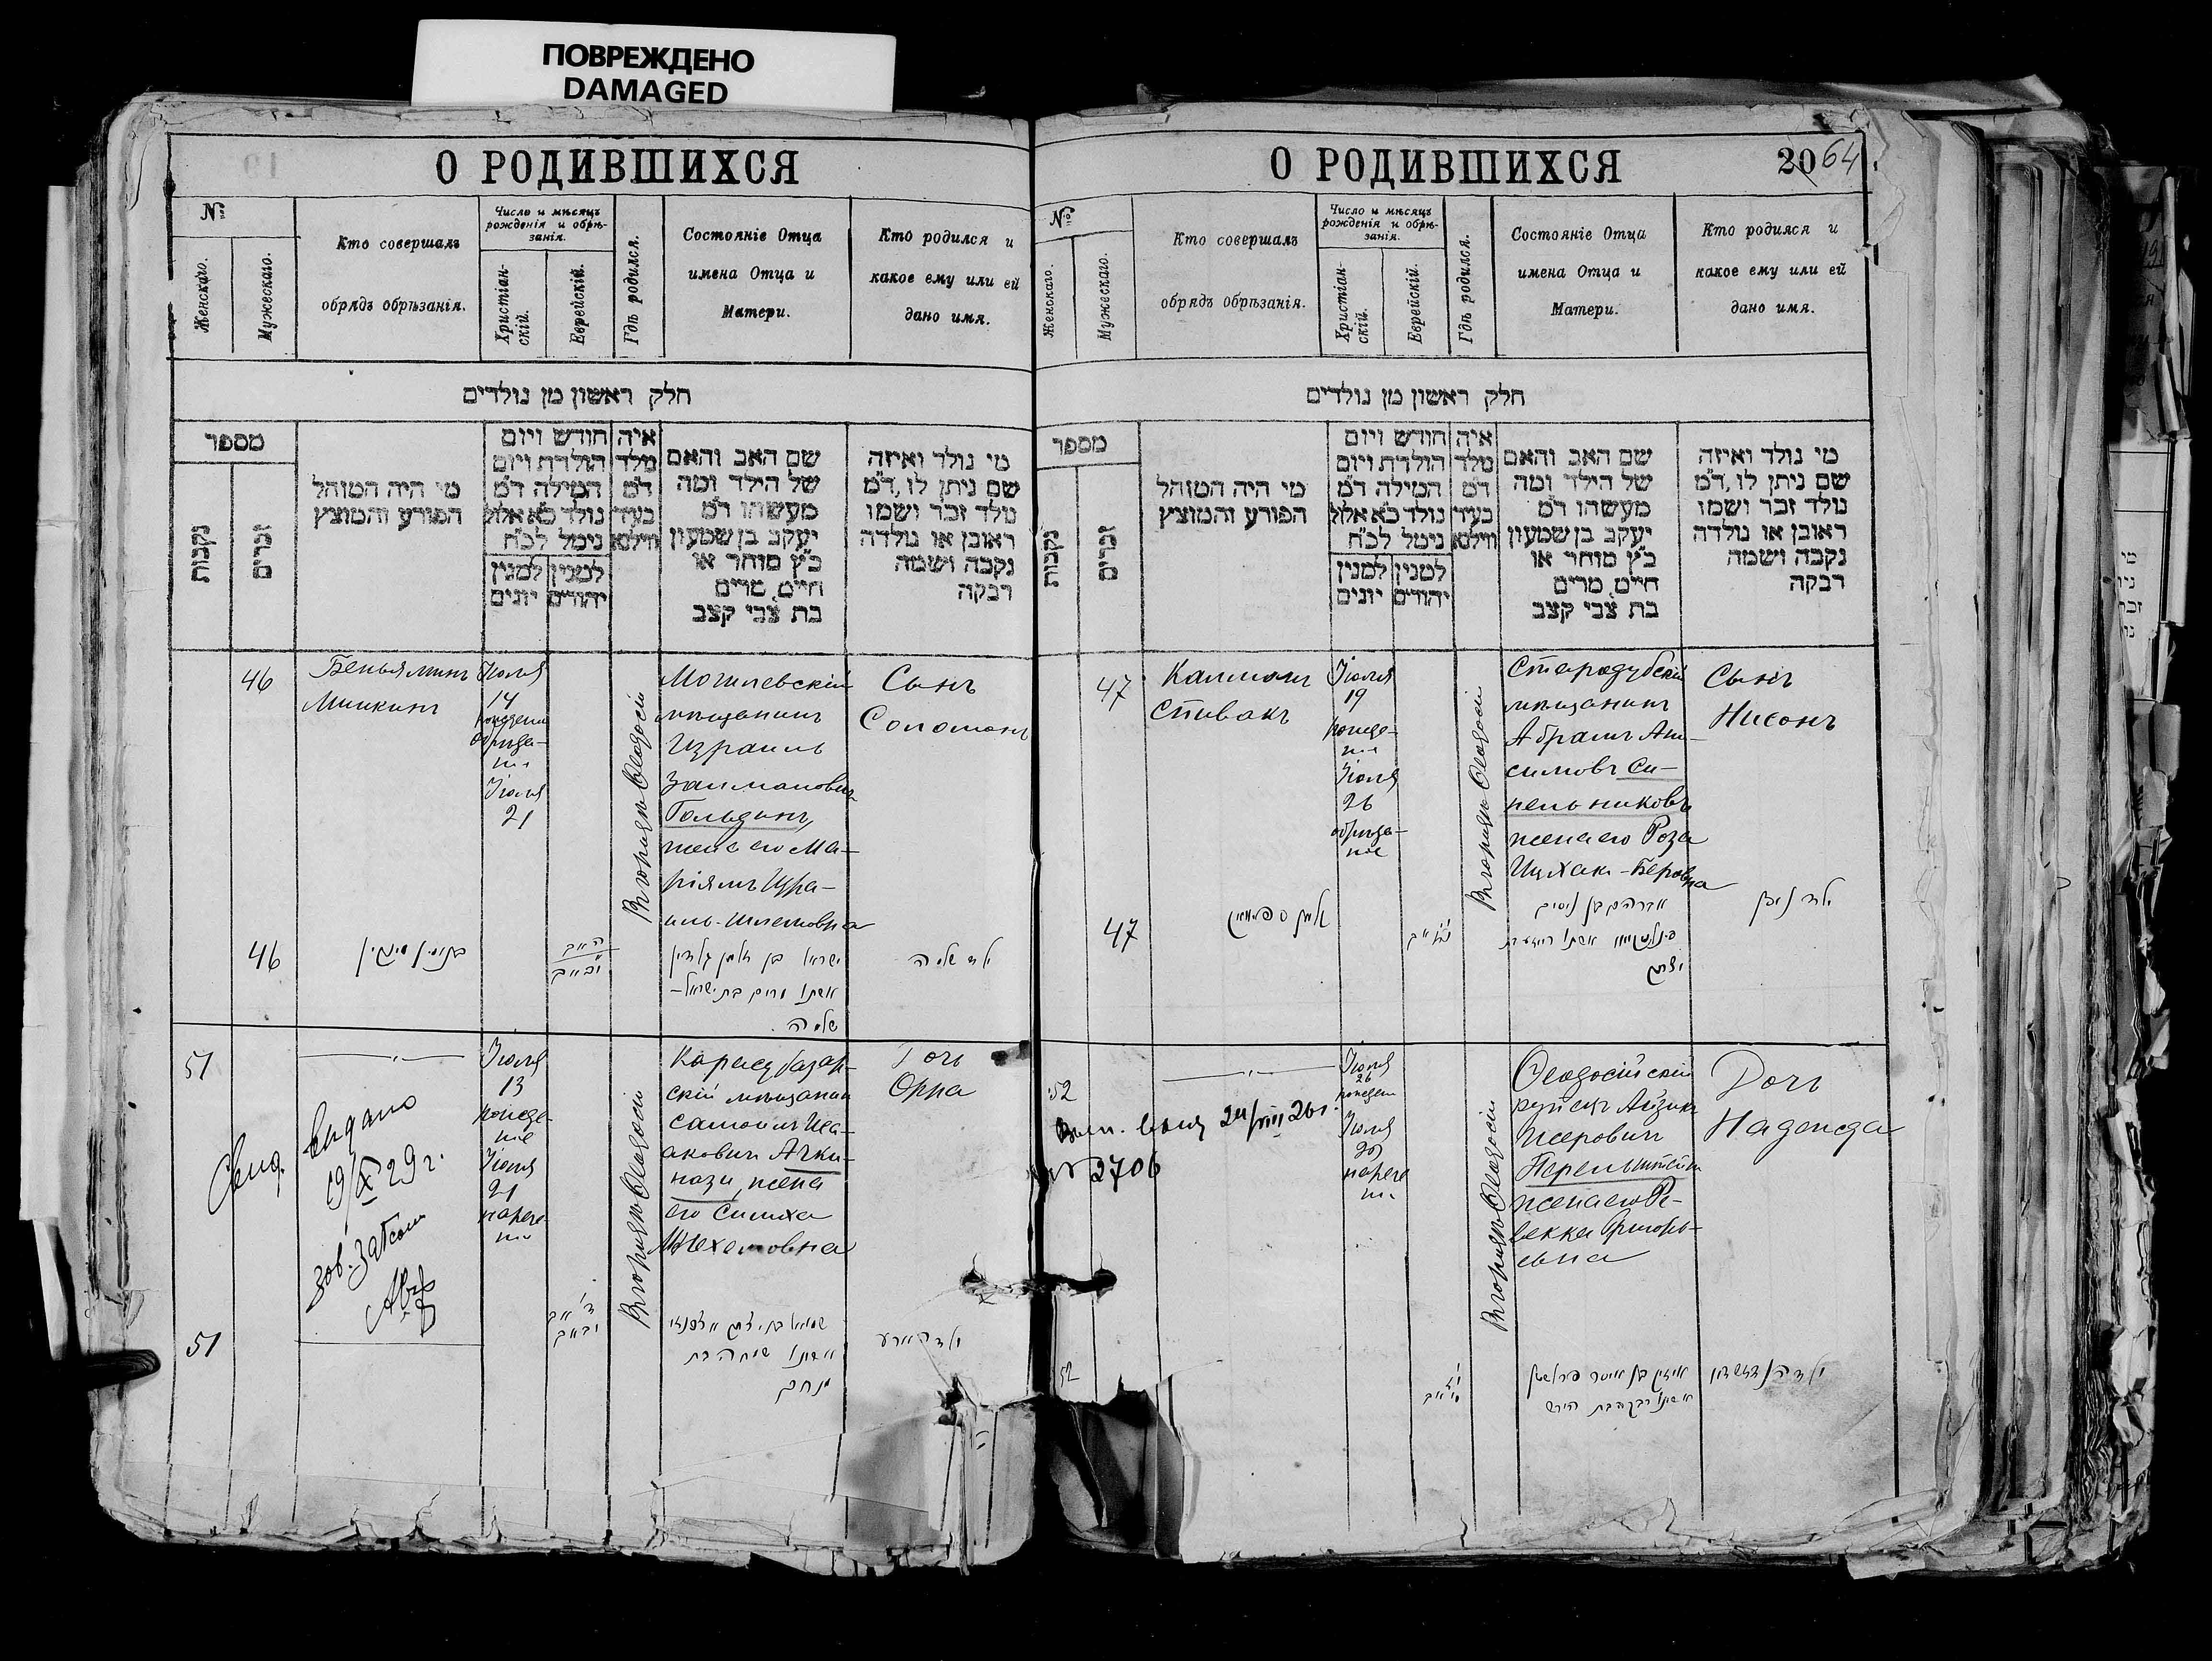 ПОВРЕЖДЕНО
DAMAGED
О РОДИВШИХСЯ
№
Женскаго.
Мужескаго.
Кто совершалъ
обрядъ обрѣзанія.
Число и мѣсяцъ
рожденія и обрѣ-
занія.
Христіан-
скій.
Еврейскій.
Гдѣ родился.
Состояніе Отца
имена Отца и
Матери.
Кто родился и
какое ему или ей
дано имя.
חלק ראשון מן נולדים
מספר
נקבות
זכרים
מי היה המוהל
הפורע והמוצץ
חודש ויום
הולדת ויום
המילה ד״מ
נולד כ״א אלול
נימל לכ״ח
למנין
יהודים
למנין
יונים
איה
מלד
ד״מ
בעיר
ווילנא
שם האב והאם
של הילד ומה
מעשהו ד״מ
יעקב בן שמעון
כ״ץ סוחר או
חיים, מרים
בת צבי קצב
מי נולד ואיזה
שם ניתן לו, ד״מ
נולד זכר ושמו
ראובן או נולדה
נקבה ושמה
רבקה
46
Беньяминъ
Мишкинъ
Іюля
14
рожденіе
обрѣза-
ніе
Іюля
21
Въ городѣ Ѳеодосіи
Могилевскій
мѣщанинъ
Израиль
Залмановичъ
Гольдинъ,
жена его Ма-
ріямъ Изра-
иль-Шлемовна
Сынъ
Соломонъ
46
בנימין מישקין
ישראל בן זלמן גאלדין
אשתו מרים בת ישראל-
שלמה
ילד שלמה
51
Свид. выдано
19/IX 29 г.
зав. Загсом
Іюля
13
рожде-
ніе
Іюля
21
нарече-
ніе
Въ городѣ Ѳеодосіи
Карасубазар-
скій мѣщанинъ
Самоилъ Иса-
аковичъ Ачки-
нази, жена
его Симха
Мехемовна
Дочь
Орна
51
שמואל בן יצחק אשכנזי
אשתו שמחה בת
מנחם
О РОДИВШИХСЯ
20 64
№
Женскаго.
Мужескаго.
Кто совершалъ
обрядъ обрѣзанія.
Число и мѣсяцъ
рожденія и обрѣ-
занія.
Христіан-
скій.
Еврейскій.
Гдѣ родился.
Состояніе Отца
имена Отца и
Матери.
Кто родился и
какое ему или ей
дано имя.
חלק ראשון מן נולדים
מספר
נקבות
זכרים
מי היה המוהל
הפורע והמוצץ
חודש ויום
הולדת ויום
המילה ד״מ
נולד כ״א אלול
נימל לכ״ח
למנין
יהודים
למנין
יונים
איה
מלד
ד״מ
בעיר
ווילנא
שם האב והאם
של הילד ומה
מעשהו ד״מ
יעקב בן שמעון
כ״ץ סוחר או
חיים, מרים
בת צבי קצב
מי נולד ואיזה
שם ניתן לו, ד״מ
נולד זכר ושמו
ראובן או נולדה
נקבה ושמה
רבקה
47
Калманъ
Спивакъ
Іюля
19
рожде-
ніе
Іюля
26
обрѣза-
ніе
Въ городѣ Ѳеодосіи
Стародубскій
мѣщанинъ
Абрамъ Ани-
симовъ Си-
нельниковъ
жена его Роза
Ицхак-Беровна
Сынъ
Нисонъ
47
אברהם בן ניסים
יצחק
ילד ניסן
52
24/VIII 26 г.
№ 2706
Іюля
26
рожден
Іюля
29
нарече
ніе
Въ городѣ Ѳеодосіи
Ѳеодосійскій
купецъ Айзикъ
Исеровичъ
Перельштейнъ
жена его Ре-
векка Григорь-
евна
Дочь
Надежда
52
אייזיק בן איסר פערלשטיין
אשתו רבקה בת הירש